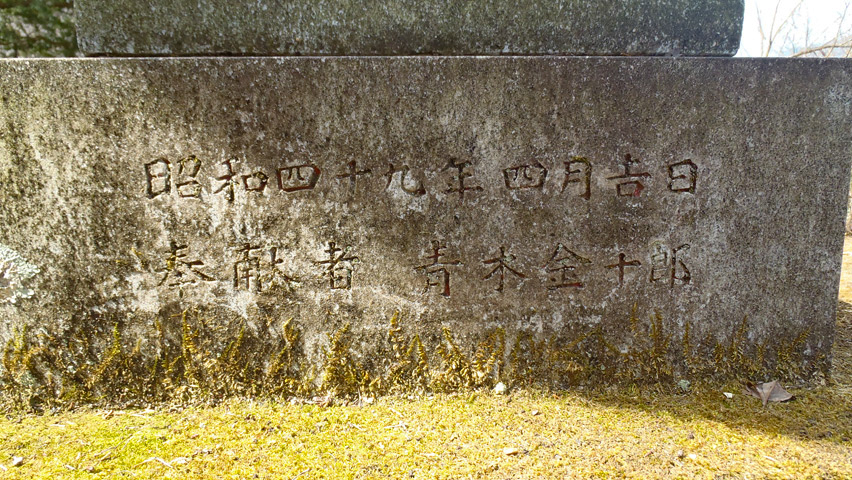 昭和四十九年四月吉日
奉献者 青木金十郎